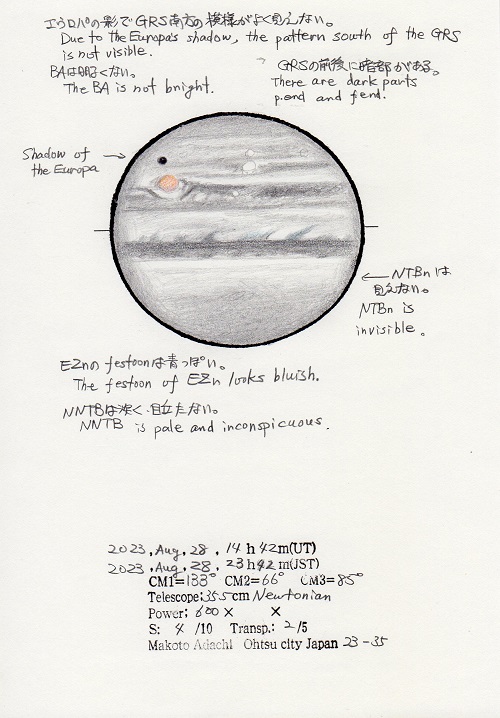 エウロパの影でGRS南方の模様がよく見えない。
Due to the Europa's shadow, the pattern south of the GRS
is not visible.
BAは明るくない。
The BA is not bright.
GRSの前後に暗部がある。
There are dark parts
p.end and f.end.
Shadow of
the Europa
NTBnは
見えない。
NTBn is
invisible.
EZnのfestoonは青っぽい。
The festoon of EZn looks bluish.
NNTBは淡く、目立たない。
NNTB is pale and inconspicuous.
2023, Aug, 28, 14h42m(UT)
2023, Aug, 28, 23h42m(JST)
CM1=133° CM2=66° CM3=85°
Telescope:35.5cm Newtonian
Power: 600× ×
S: 4 /10 Transp.: 2/5
Makoto Adachi Ohtsu city Japan 23-35